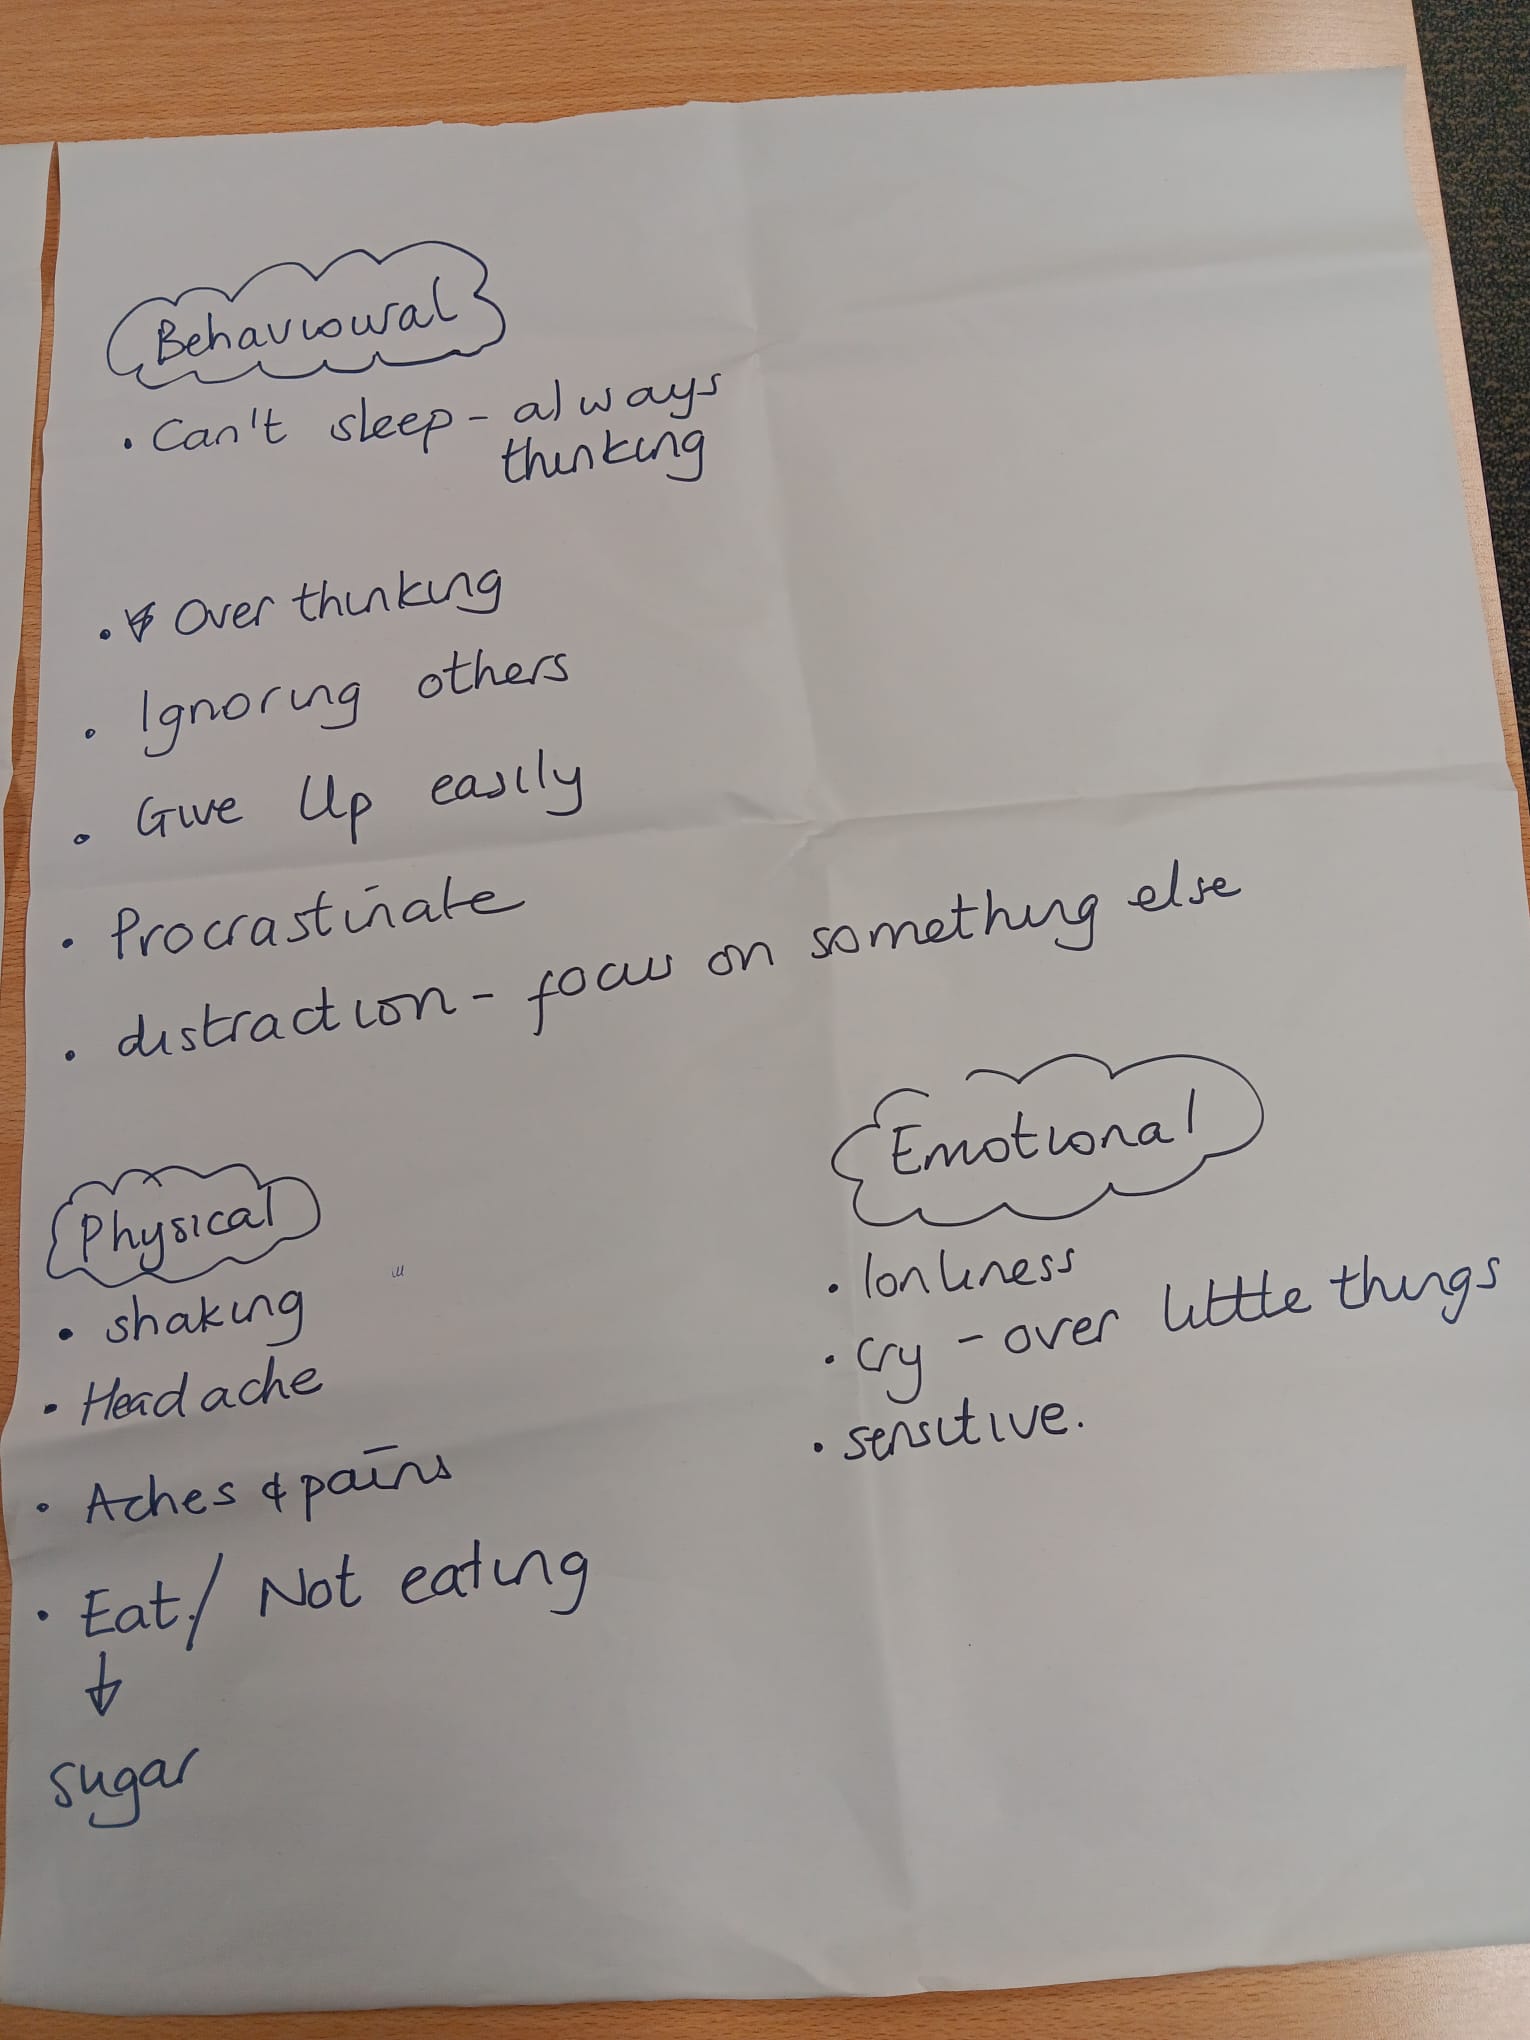 Behavioural
• Can't sleep - always
thinking
• Over thinking
• Ignoring others
• Give Up easily
• Procrastinate
• distraction - focus on something else
Physical
• shaking
• Headache
• Aches & pains
• Eat / Not eating
↓
sugar
Emotional
• lonliness
• cry - over little things
• sensitive.